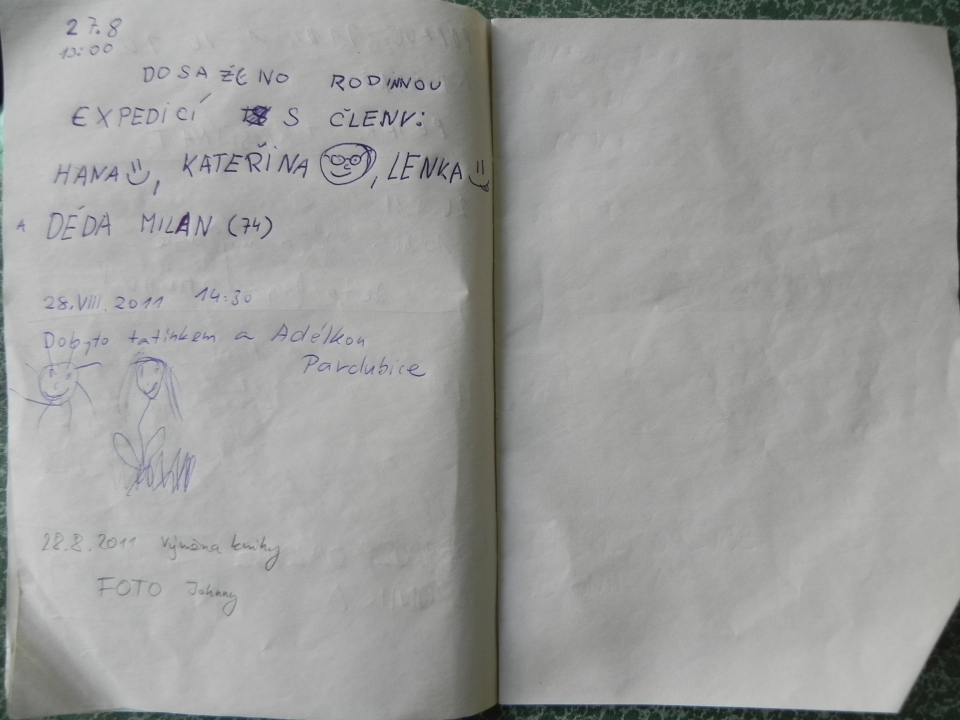 27.8
13:00
DOSAŽENO RODINNOU
EXPEDICÍ S ČLENY:
HANA, KATEŘINA, LENKA
A DĚDA MILAN (74)
28.VIII.2011 14:30
Dobyto tatínkem a Adélkou
Pardubice
28.8.2011 Výměna knihy
FOTO Johnny